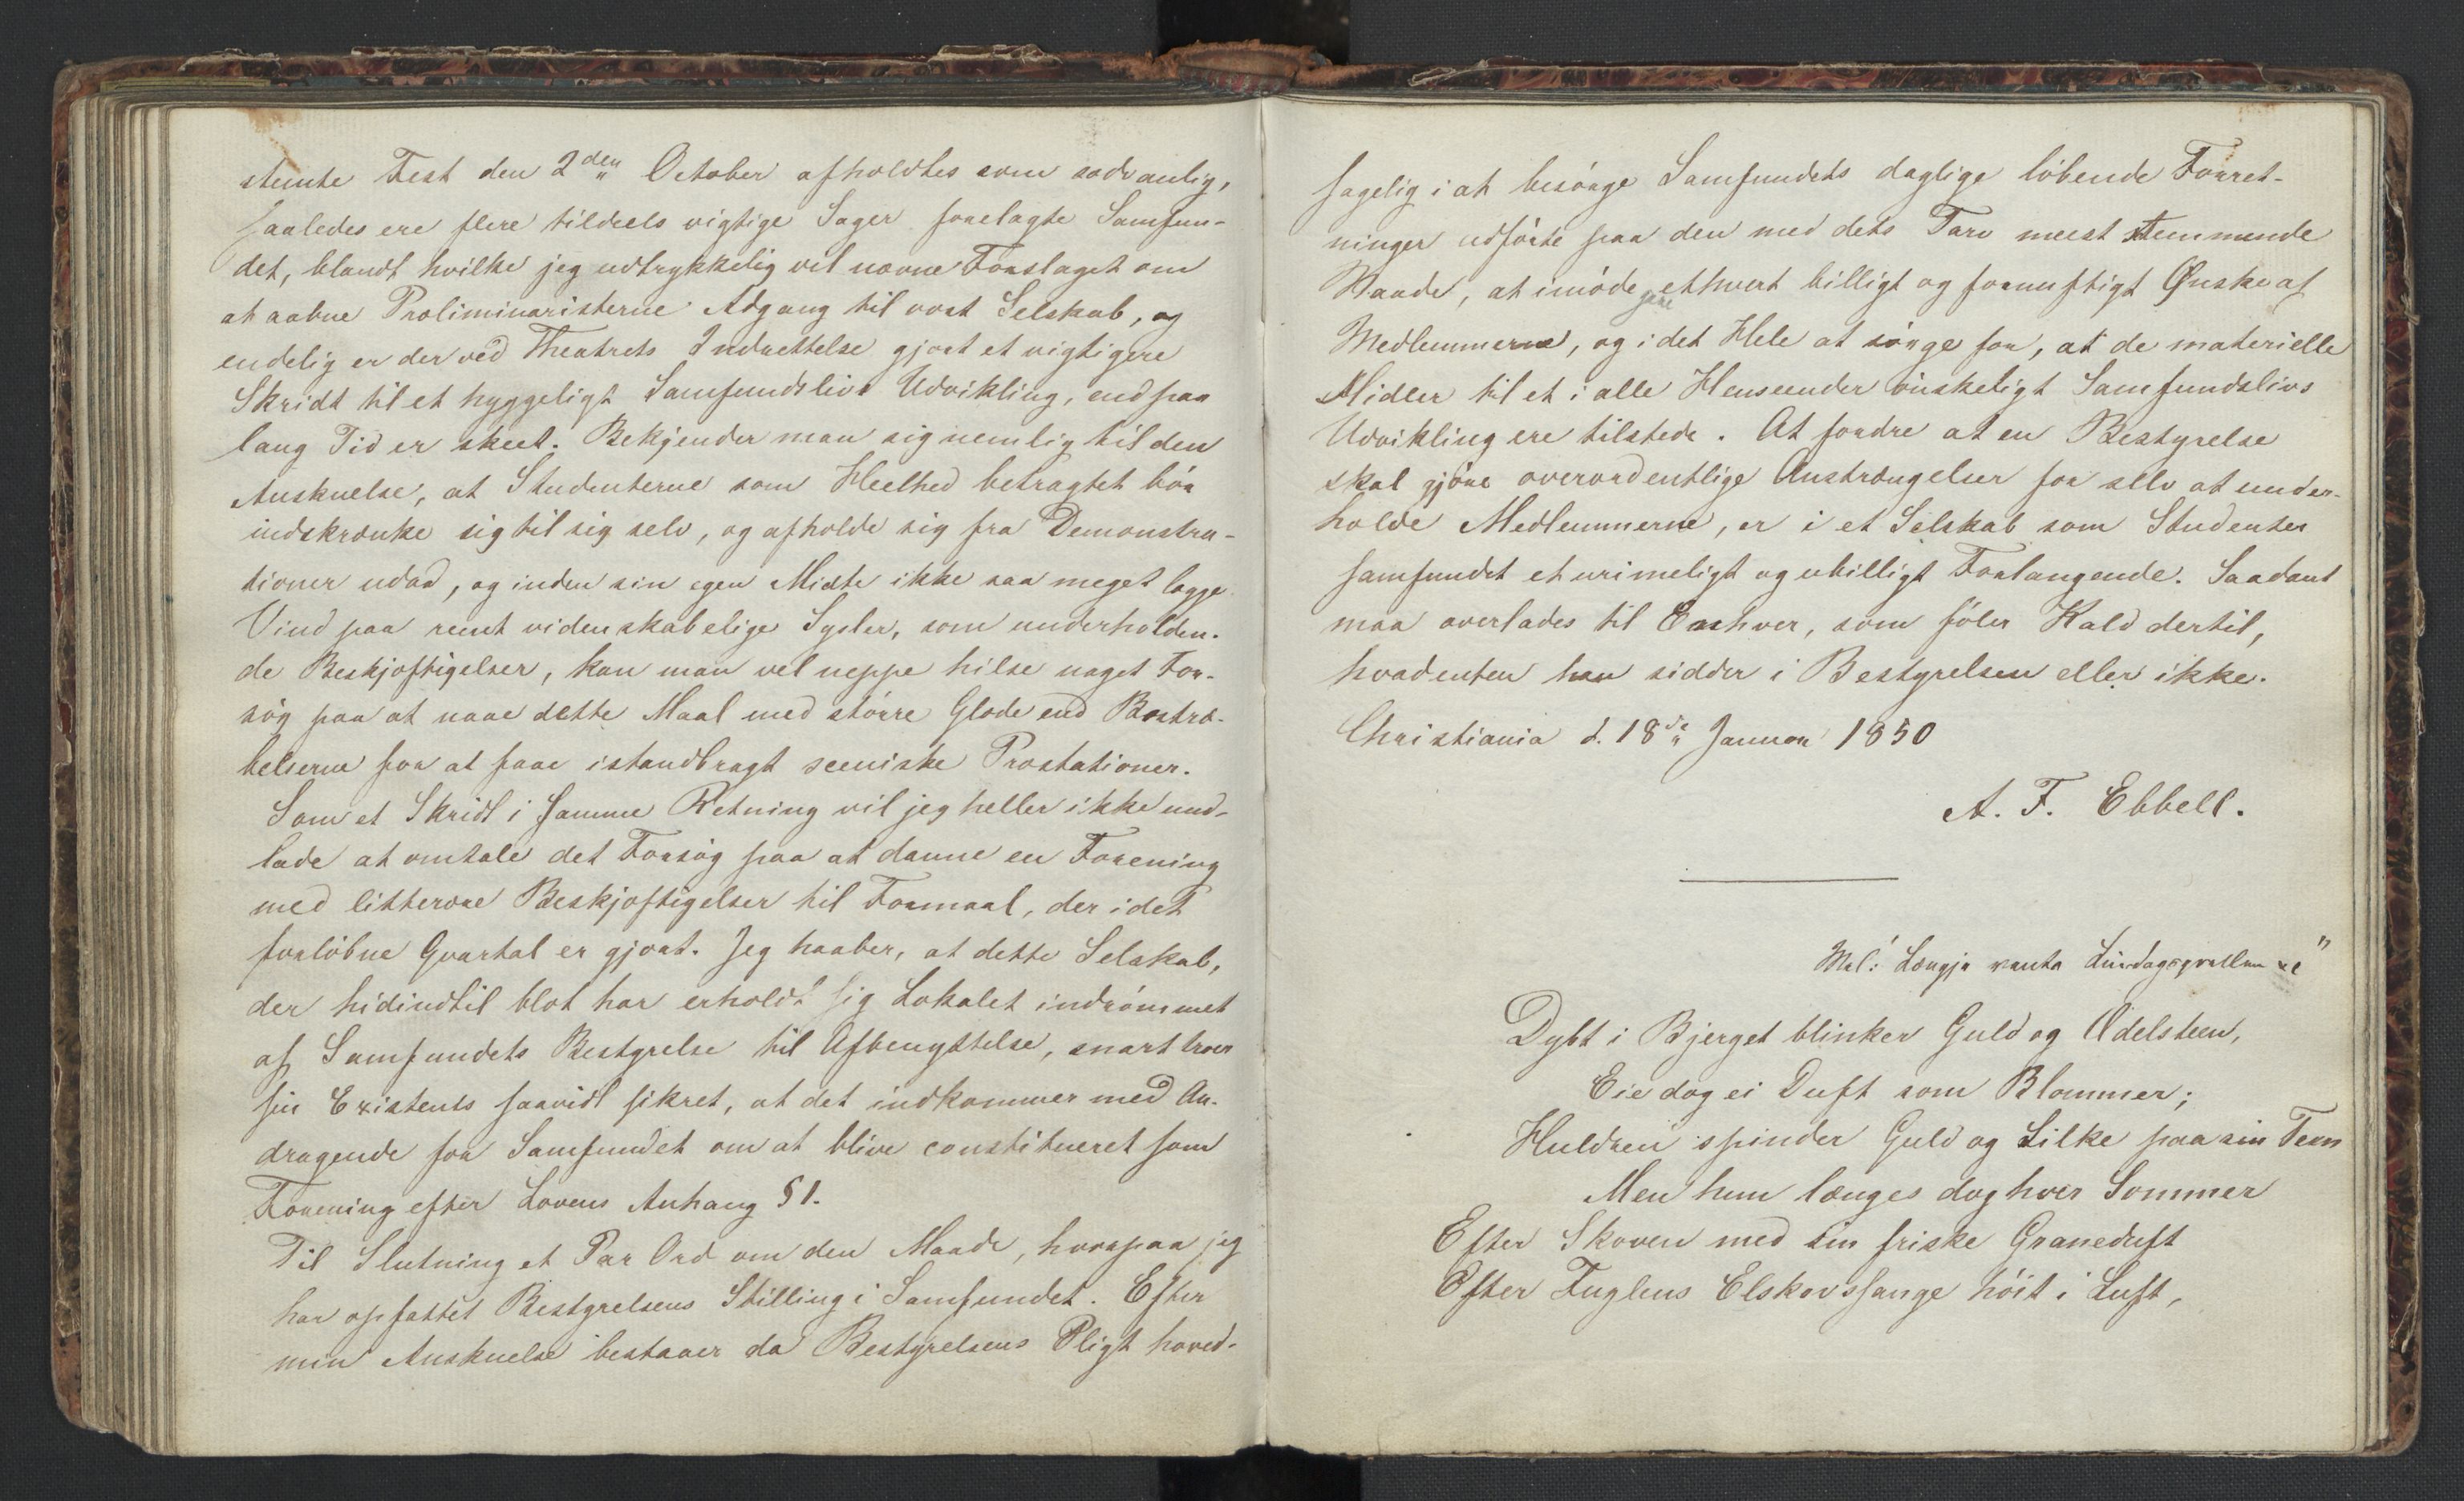 stemte Fest den 2den October afholdtes som sædvanlig,
saaledes ere flere tildeels vigtige Sager forelagte Samfun-
det, blandt hvilke jeg udtrykkelig vil nævne Forslaget om
at aabne Præliminaristerne Adgang til vort Selskab, og
endelig er der ved Theatrets Indrettelse gjort et vigtigere
Skridt til et hyggeligt Samfundslivs Udvikling, end paa
lang Tid er skeet. Bekjender man sig nemlig til den
Anskuelse, at Studenterne som Heelhed betragtet bör
indskrænke sig til sig selv, og afholde sig fra Demonstra-
tioner udad, og inden sin egen Midte ikke saa meget lægge
Vind paa reent videnskabelige Sysler, som underholden-
de Beskjæftigelser, kan man vel neppe hilse noget For-
søg paa at naae dette Maal med större Glæde end Bestræ-
belserne for at faae istandbragt sceniske Præstationer.
Som et Skridt i samme Retning vil jeg heller ikke und-
lade at omtale det Forsög paa at danne en Forening
med litterære Beskjæftigelser til Formaal, der i det
forløbne Qvartal er gjort. Jeg haaber, at dette Selskab,
der hidindtil blot har erholdt sig Lokalet indrömmet
af Samfundets Bestyrelse til Afbenyttelse, snart troer
sin Existents saavidt sikret, at det indkommer med An-
dragende for Samfundet om at blive constitueret som
Forening efter Lovens Anhang § 1.
Til Slutning et Par Ord om den Maade, hvorpaa jeg
har opfattet Bestyrelsens Stilling i Samfundet. Efter
min Anskuelse bestaaer da Bestyrelsens Pligt hoved-
sagelig i at besörge Samfundets daglige löbende Forret-
ninger udförte paa den med dets Tarv meest stemmende
Maade, at imödegaae ethvert billigt og fornuftigt Ønske af
Medlemmerne, og i det Hele at sörge for, at de materielle
Midler til et i alle Henseender önskeligt Samfundslivs
Udvikling ere tilstede. At fordre at en Bestyrelse
skal gjöre overordentlige Anstrængelser for selv at under-
holde Medlemmerne, er i et Selskab som Studenter
samfundet et urimeligt og ubilligt Forlangende. Saadant
maa overlades til Enhver, som föler Kald dertil,
hvadenten han sidder i Bestyrelsen eller ikke.
Christiania d. 18de Januar 1850
A. F. Ebbell.
Mel: Længje vanta
Dybt i Bjerget blinker Guld og Ædelsteen,
Eie dog ei Duft som Blommer;
Huldren spinder Guld og Silke paa sin Teen
Men hun længes dog hver Sommer
Efter Skoven med sin friske Graneduft
Efter Fuglens Elskovssange höit i Luft,